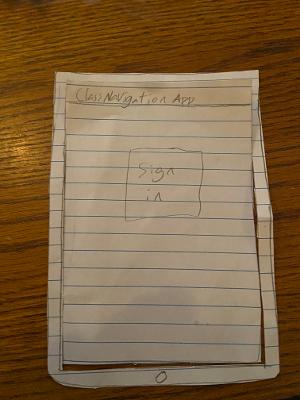 Class Navigation App
Sign
in